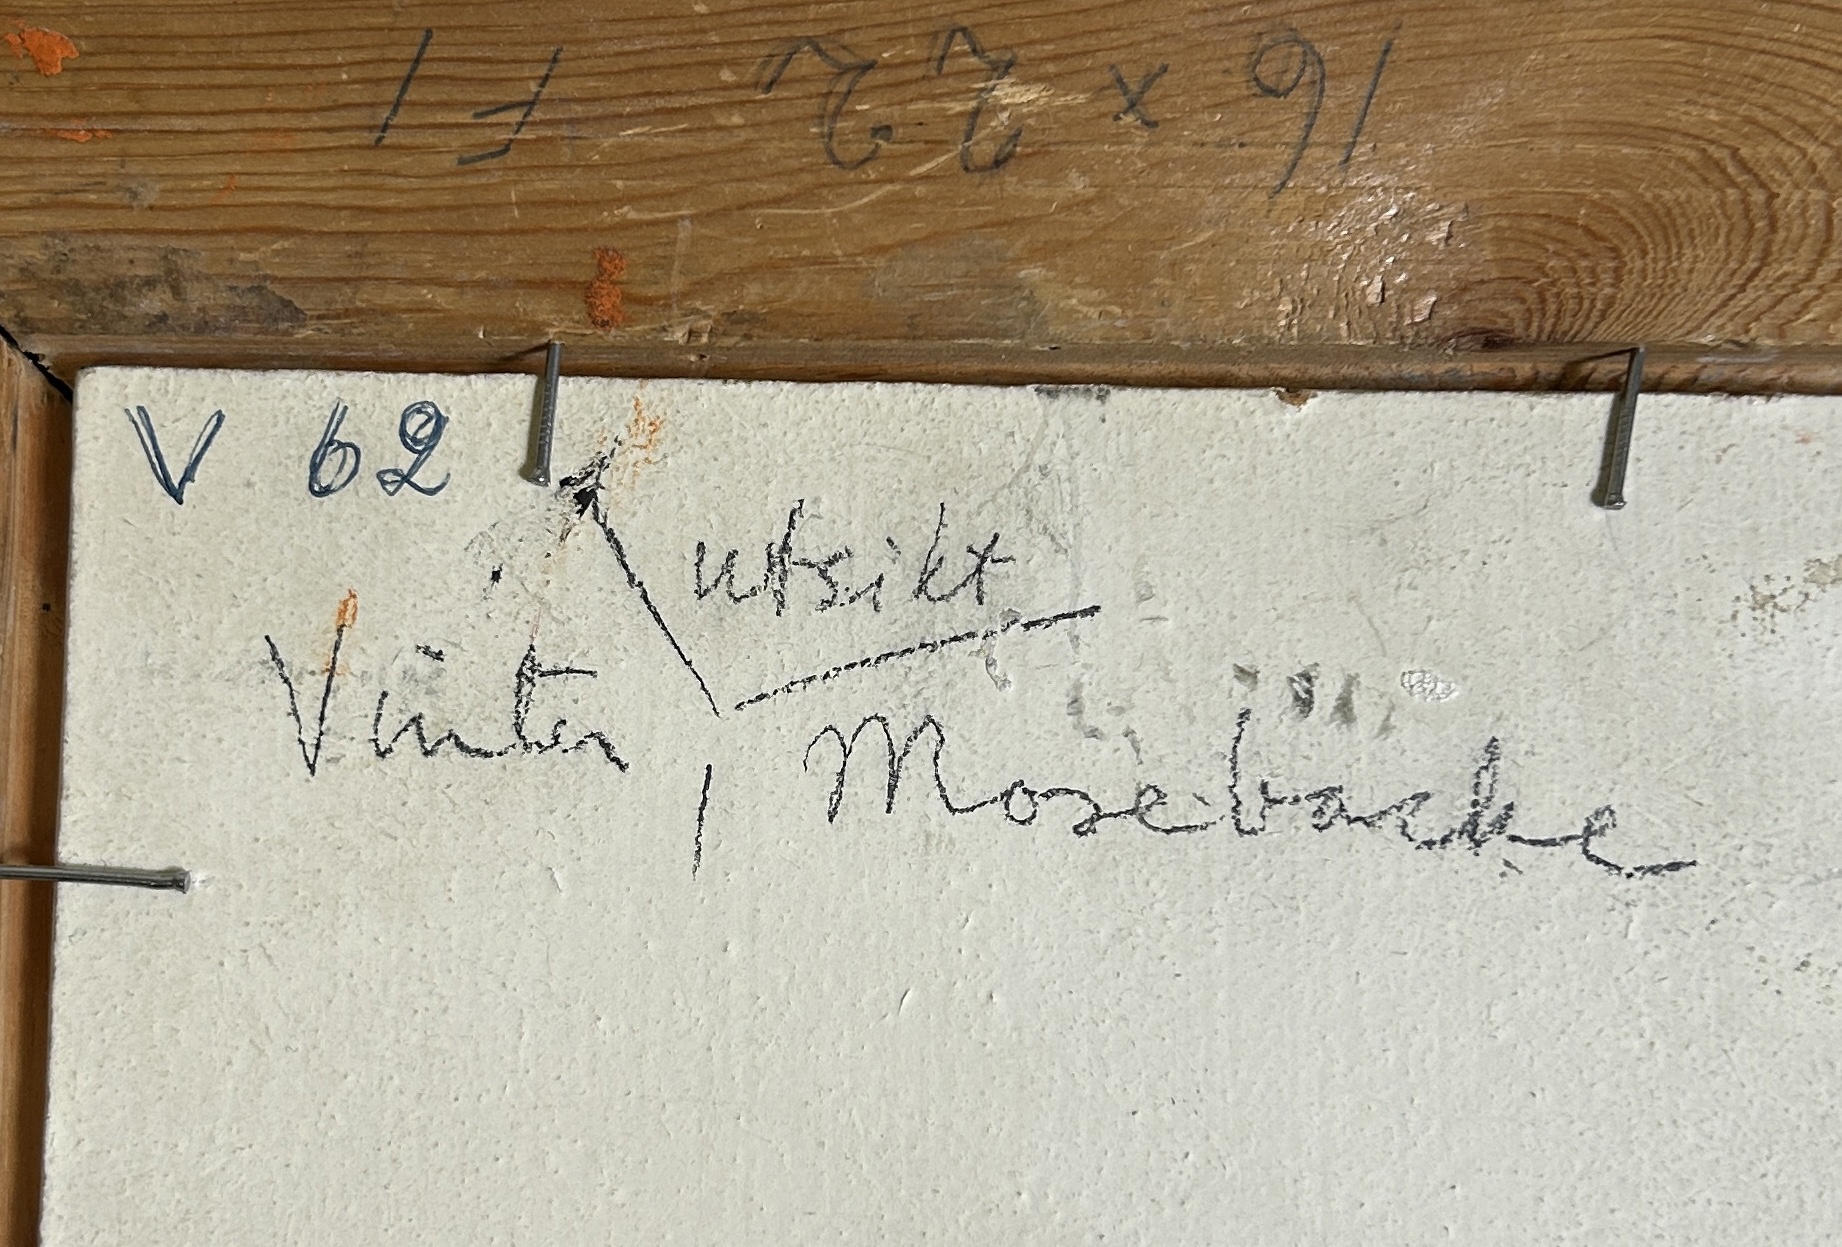 16 x 22 F1
V 62
utsikt
Vinter, Mosebacke